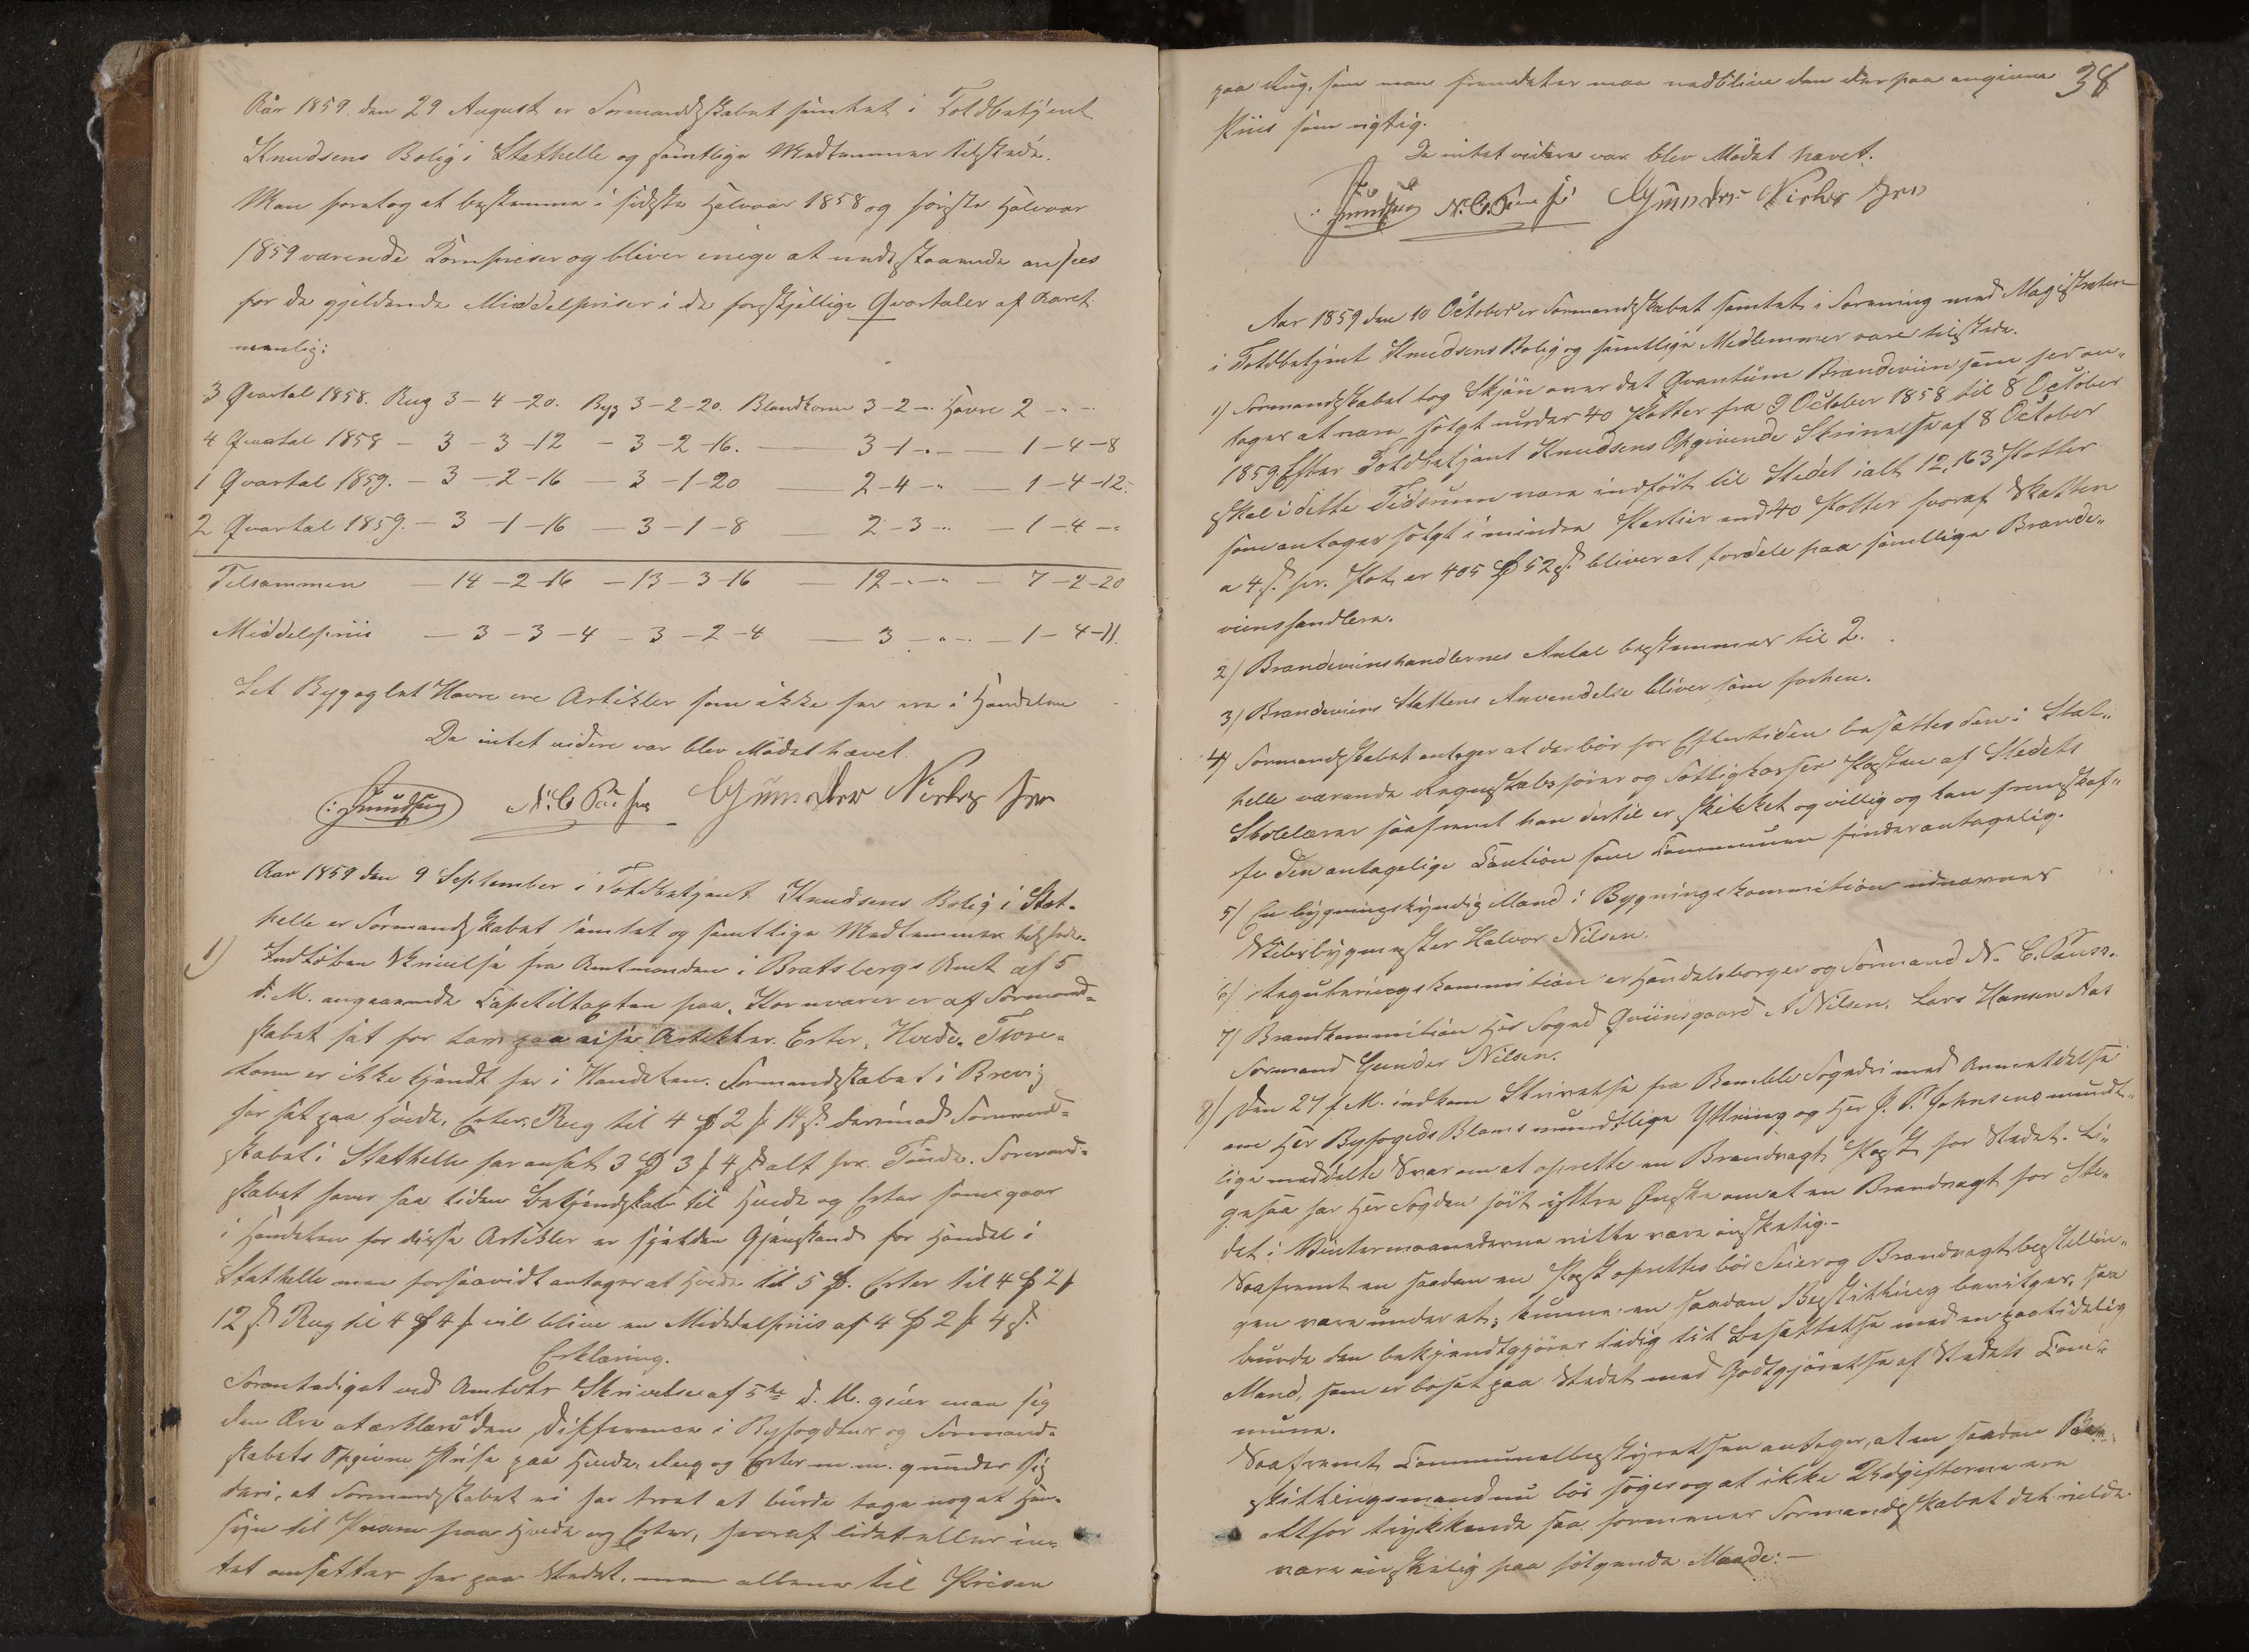 Aar 1859 den 29 August er Formandskabet samlet i Toldbetjent
Knudsens Bolig i Stathelle og samtlige Medlemmer tilstede.
Man foretog at bestemme i sidste Halvaar 1858 og første Halvaar
1859 værende Kornpriser og bliver enige at nedstaaende ansees
for de gjeldende Middelpriser i de forskjellige Qvartaler af Aaret
nemlig:
3 Qvartal 1858. Rug 3-4-20. Byg 3-2-20. Blandkorn 3-2-„. Havre 2-„-„
4 Qvartal 1858 - 3-3-12 - 3-2-16. — 3-1-„ — 1-4-8
1 Qvartal 1859. - 3-2-16 - 3-1-20 — 2-4-„ — 1-4-12.
2 Qvartal 1859. - 3-1-16 - 3-1-8 — 2-3-„ — 1-4-„
Tilsammen — 14-2-16 - 13-3-16 12-„-„ — 7-2-20
Middelpriis — 3-3-4 - 3-2-4 — 3-„-„ — 1-4-11.
Let Byg og let Havre ere Artikler som ikke her ere i Handelen
Da intet videre var blev Mödet hævet.
Knudsen N. C. Paus Gunder Nielsen
Aar 1859 den 9 September i Toldbetjent Knudsens Bolig i Stat-
helle er Formandskabet samlet og samtlige Medlemmer tilstede.
1) Indløben Skrivelse fra Amtmanden i Bratsbergs Amt af 5
d. M. angaaende Kapiteltaxten paa Kornvarer er af Formand-
skabet sat for lavt paa disse Artikler. Erter, Hvede.
korn er ikke kjendt her i Handelen. Formandskabet i Brevig
har sat paa Hvede, Erter, Rug til 4 Spd 2 ₰ 14 s. derimod Formand-
skabet i Stathelle har ansat 3 Spd 3 ₰ 4 s alt pr. Tønde. Formand-
skabet haver saa liden Bekjendskab til Hvede og Erter som gaar
i Handelen for disse Artikler er sjelden Gjenstand for Handel i
Stathelle men forsaavidt antager at Hvede til 5 Spd. Erter til 4 Spd 2 ₰
12 s Rug til 4 Spd 4 ₰ vil blive en Middelpriis af 4 Spd 2 ₰ 4 s.
Erklæring.
Foranlediget ved Amtets Skrivelse af 5te d. M. giver man sig
den Ære at erklære at den Differance i Byfogdens og Formand-
skabets Opgivne Prise paa Hvede, Rug og Erter m. m. grunder sig
deri, at Formandskabet ei har troet at burde tage noget Hen-
syn til Prisen paa Hvede og Erter, hvoraf lidet eller in-
tet omsættes her paa Stedet, men allene til Prisen
38
paa Rug, som man fremdeles maa vedblive den derpaa angivne
Priis som rigtig.
Da intet videre var blev Mødet hævet.
Knudsen N. C. Paus Gunder Nielsen
Aar 1859 den 10 October er Formandskabet samlet i Forening med Magistraten
i Toldbetjent Knudsens Bolig og samtlige Medlemmer vare tilstede.
1) Formandskabet tog Skjøn over det Qvantum Brændeviin som her an-
tages at være solgt under 40 Potter fra 9 October 1858 til 8 October
1859. Efter Toldbetjent Knudsens Opgivende Skrivelse af 8 October
skal i dette Tidsrum være indført til Stedet ialt 12,163 Potter
som antages solgt i mindre Partier end 40 Potter hvoraf Skatten
a 4 s. pr. Pot er 405 Spd 52 s. bliver at fordele paa samtlige Brænde-
viinshandlere.
2) Brændeviinshandlernes Antal bestemmes til 2.
3) Brændeviins Skattens Anvendelse bliver som forhen.
4) Formandskabet antager at der bør for Eftertiden besættes den i Stat-
helle værende Regnskabsfører og Fattigkasser Posten af Stedets
Skolelærer saafremt han dertil er skikket og villig og kan fremskaf-
fe den antagelige Caution som Communen finder antagelig.
5) En bygningskyndig Mand i Bygningskommition udnævnes
Skibsbygmester Halvor Nilsen.
6) Reguleringskommition er Handelsborger og Formand N. C. Paus.
7) Brandkommition Her Foged Qviinsgaard A Nilsen. Lars Hansen Aas
Formand Gunder Nilsen.
8) Den 27 f. M. indkom Skrivelse fra Bamble Fogderi med Anmeldelse
om Her Byfogeds Bloms mundtlige Yttring og Her J. P. Johnsens mundt-
lige meddelte Svar om at oprette en Brandvagt Post for Stedet. Li-
gesaa har Her Fogden høit yttre Ønske om at en Brandvagt for Ste-
det i Vintermaanederne vilde være ønskelig. -
Saafremt en saadan en Post oprettes bør Feier og Brandvagtbestillin-
gen være under et, kunne en saadan Bestilling bevilges, saa
burde den bekjendtgjøres tidig til Besættelse med en paalidelig
Mand, som er bosat paa Stedet med Godtgjørelse af Stedets Com-
mune.
Saafremt Communalbestyrelsen antager, at en saadan Be-
stillingsmand nu bør søges og at ikke Udgifterne ere
altfor trykkende saa formener Formandskabet det vilde
være ønskelig paa følgende Maade: —